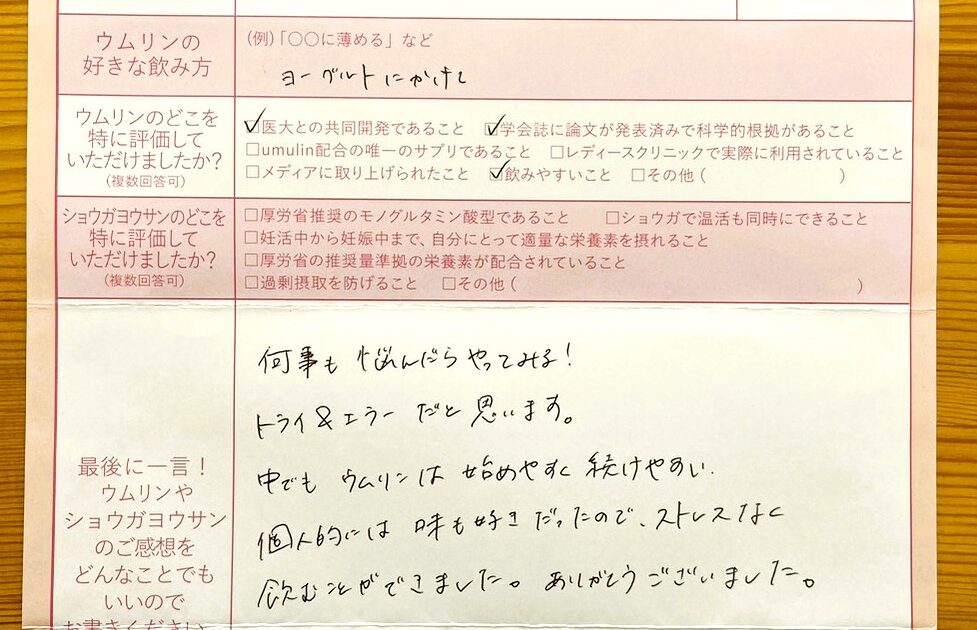 ウムリンの
好きな飲み方
(例)「○○に薄める」など
ヨーグルトにかけて
ウムリンのどこを
特に評価して
いただけましたか?
(複数回答可)
☑医大との共同開発であること ☑学会誌に論文が発表済みで科学的根拠があること
□umulin配合の唯一のサプリであること □レディースクリニックで実際に利用されていること
□メディアに取り上げられたこと ☑飲みやすいこと □その他( )
ショウガヨウサンのどこを
特に評価して
いただけましたか?
(複数回答可)
□厚労省推奨のモノグルタミン酸型であること □ショウガで温活も同時にできること
□妊活中から妊娠中まで、自分にとって適量な栄養素を摂れること
□厚労省の推奨量準拠の栄養素が配合されていること
□過剰摂取を防げること □その他( )
最後に一言!
ウムリンや
ショウガヨウサン
のご感想を
どんなことでも
いいので
お書きください
何事も 悩んだらやってみる!
トライ&エラー だと思います。
中でも ウムリンは 始めやすく 続けやすい.
個人的には 味も好きだったので、ストレスなく
飲むことができました。ありがとうございました。